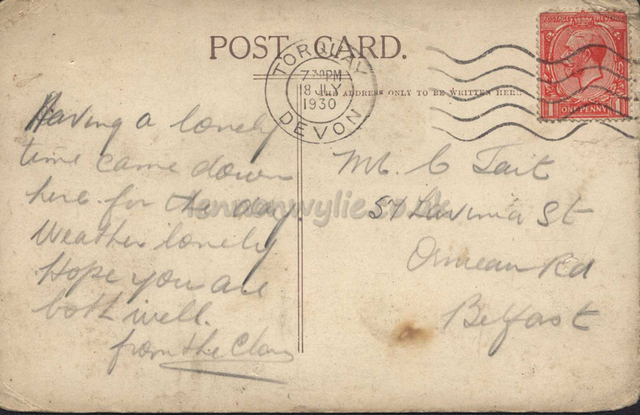 POST CARD.
TORQUAY
7 30 PM
18 JLY
1930
DEVON
THE ADDRESS ONLY TO BE WRITTEN HERE.
POSTAGE REVENUE
1 ONE PENNY 1
Having a lonely
time came down
here for the day.
Weather lonely
Hope you are
both well.
from the Clan
lennonwylie.co.uk
Mr. C Tait
57 Lavinia St
Ormeau Rd
Belfast